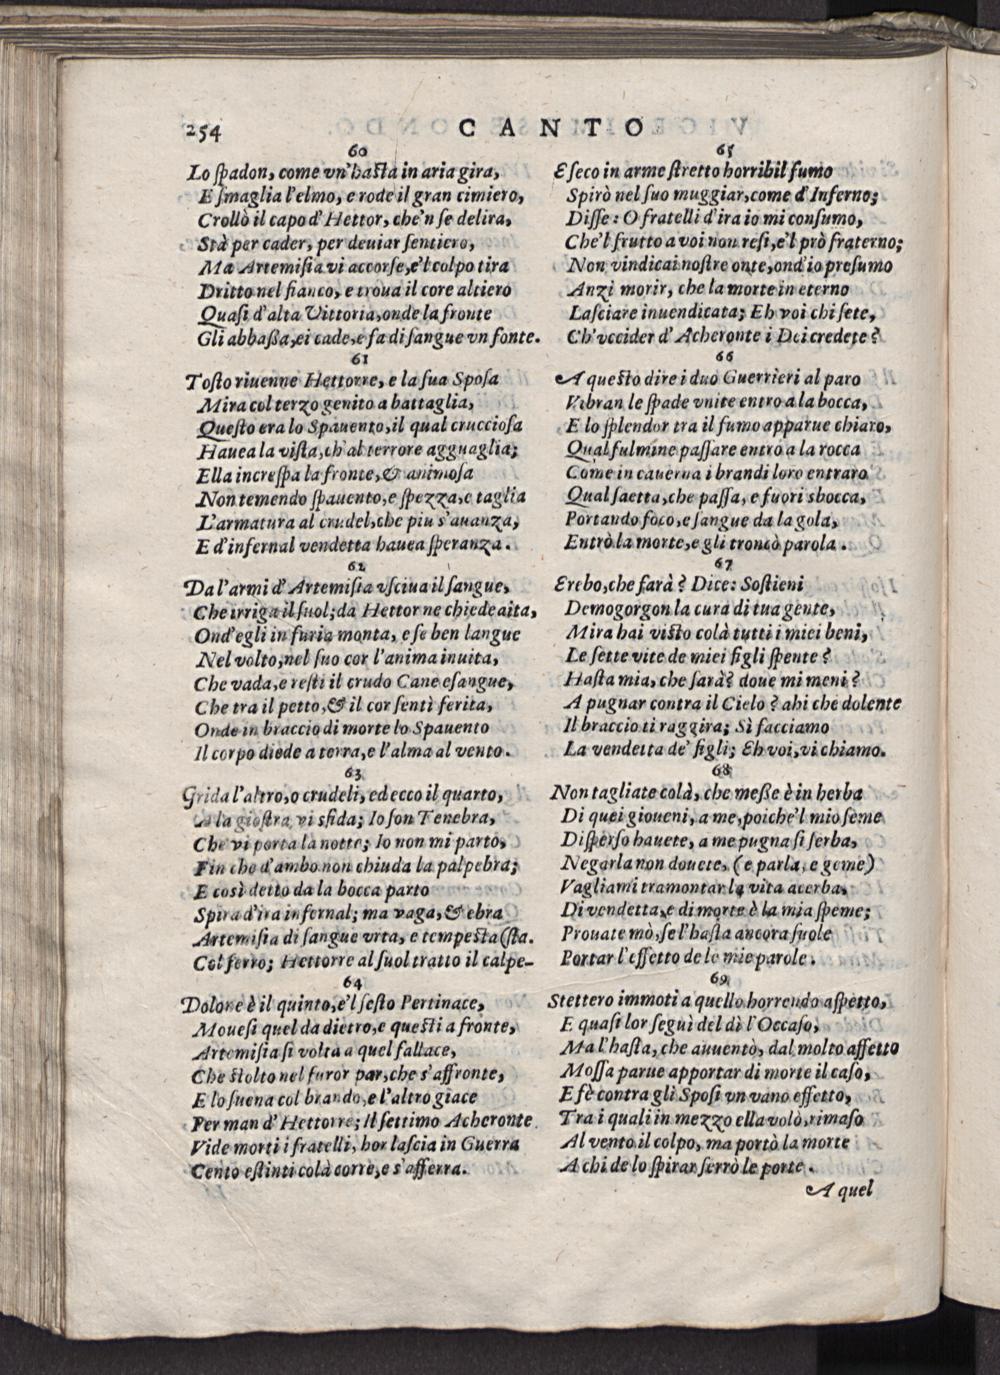 254 CANTO
60
Lo ſpadon, come vn'haſta in aria gira,
E ſmaglia l'elmo, e rode il gran cimiero,
Crollò il capo d'Hettor, che'n ſe delira,
Stà per cader, per deuiar ſentiero,
Ma Artemiſia vi accorſe, e'l colpo tira
Dritto nel fianco, e troua il core altiero
Quaſi d'alta Vittoria, onde la fronte
Gli abbaßa, ei cade, e fa di ſangue vn fonte.
61
Toſto riuenne Hettorre, e la ſua Spoſa
Mira col terzo genito a battaglia,
Queſto era lo Spauento, il qual cruccioſa
Hauea la viſta, ch'al terrore agguaglia;
Ella increſpa la fronte, & animoſa
Non temendo ſpauento, e ſpezza, e taglia
L'armatura al crudel, che piu s'auanza,
E d'infernal vendetta hauea ſperanza.
62
Da l'armi d'Artemiſia vſciua il ſangue,
Che irriga il ſuol; da Hettor ne chiede aita,
Ond'egli in furia monta, e ſe ben langue
Nel volto, nel ſuo cor l'anima inuita,
Che vada, e reſti il crudo Cane eſangue,
Che tra il petto, & il cor ſentì ferita,
Onde in braccio di morte lo Spauento
Il corpo diede a terra, e l'alma al vento.
63
Grida l'altro, o crudeli, ed ecco il quarto,
A la gioſtra vi sfida; Io ſon Tenebra,
Che vi porta la notte; Io non mi parto,
Fin che d'ambo non chiuda la palpebra;
E così detto da la bocca parto
Spira d'ira infernal; ma vaga, & ebra
Artemiſia di ſangue vrta, e tempeſta (ſta.
Col ferro; Hettorre al ſuol tratto il calpe-
64
Dolore è il quinto, e'l ſeſto Pertinace,
Moueſi quel da dietro, e queſti a fronte,
Artemiſia ſi volta a quel fallace,
Che ſtolto nel furor par, che s'affronte,
E lo ſuena col brando, e l'altro giace
Per man d'Hettorre; Il ſettimo Acheronte
Vide morti i fratelli, hor laſcia in Guerra
Cento eſtinti colà corre, e s'afferra.
65
E ſeco in arme ſtretto horribil fumo
Spirò nel ſuo muggiar, come d'Inferno;
Diſſe: O fratelli d'ira io mi conſumo,
Che'l frutto a voi non reſi, e'l prò fraterno;
Non vindicai noſtre onte, ond'io preſumo
Anzi morir, che la morte in eterno
Laſciare inuendicata; Eh voi chi ſete,
Ch'vccider d'Acheronte i Dei credete?
66
A queſto dire i duo Guerrieri al paro
Vibran le ſpade vnite entro a la bocca,
E lo ſplendor tra il fumo apparue chiaro,
Qual fulmine paſſare entro a la rocca
Come in cauerna i brandi loro entraro
Qual ſaetta, che paſſa, e fuori sbocca,
Portando foco, e ſangue da la gola,
Entrò la morte, e gli troncò parola.
67
Erebo, che farà? Dice: Soſtieni
Demogorgon la cura di tua gente,
Mira hai viſto colà tutti i miei beni,
Le ſette vite de miei figli ſpente?
Haſta mia, che ſarà? doue mi meni?
A pugnar contra il Cielo? ahi che dolente
Il braccio ti raggira; Sì facciamo
La vendetta de' figli; Eh voi, vi chiamo.
68
Non tagliate colà, che meße è in herba
Di quei gioueni, a me, poiche'l mio ſeme
Diſperſo hauete, a me pugna ſi ſerba,
Negarla non douete, (e parla, e geme)
Vagliami tramontar la vita acerba,
Di vendetta, e di morte è la mia ſpeme;
Prouate mò, ſe l'haſta ancora ſuole
Portar l'effetto de le mie parole.
69
Stettero immoti a quello horrendo aſpetto,
E quaſi lor ſeguì del dì l'Occaſo,
Ma l'haſta, che auuentò, dal molto affetto
Moſſa parue apportar di morte il caſo,
E fè contra gli Spoſi vn vano effetto,
Tra i quali in mezzo ella volò, rimaſo
Al vento il colpo, ma portò la morte
A chi de lo ſpirar ſerrò le porte.
A quel